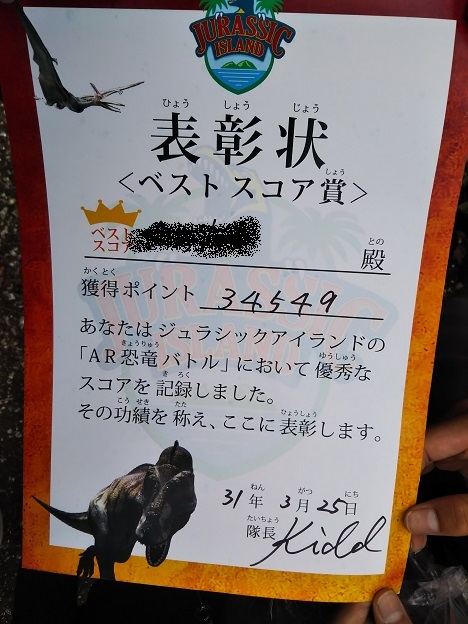 JURASSIC
ISLAND
ひょう しょう じょう
表彰状
しょう
<ベスト スコア賞>
ベスト
スコア
との
殿
かくとく
獲得ポイント 34549
あなたは ジュラシックアイランドの
きょうりゅう ゆうしゅう
「AR恐竜 バトル」において 優秀な
き ろく
スコアを 記録しました。
こう せき たた ひょうしょう
その功績を 称え、ここに 表彰します。
ねん がつ にち
31年 3月 25日
たいちょう
隊長 Kidd